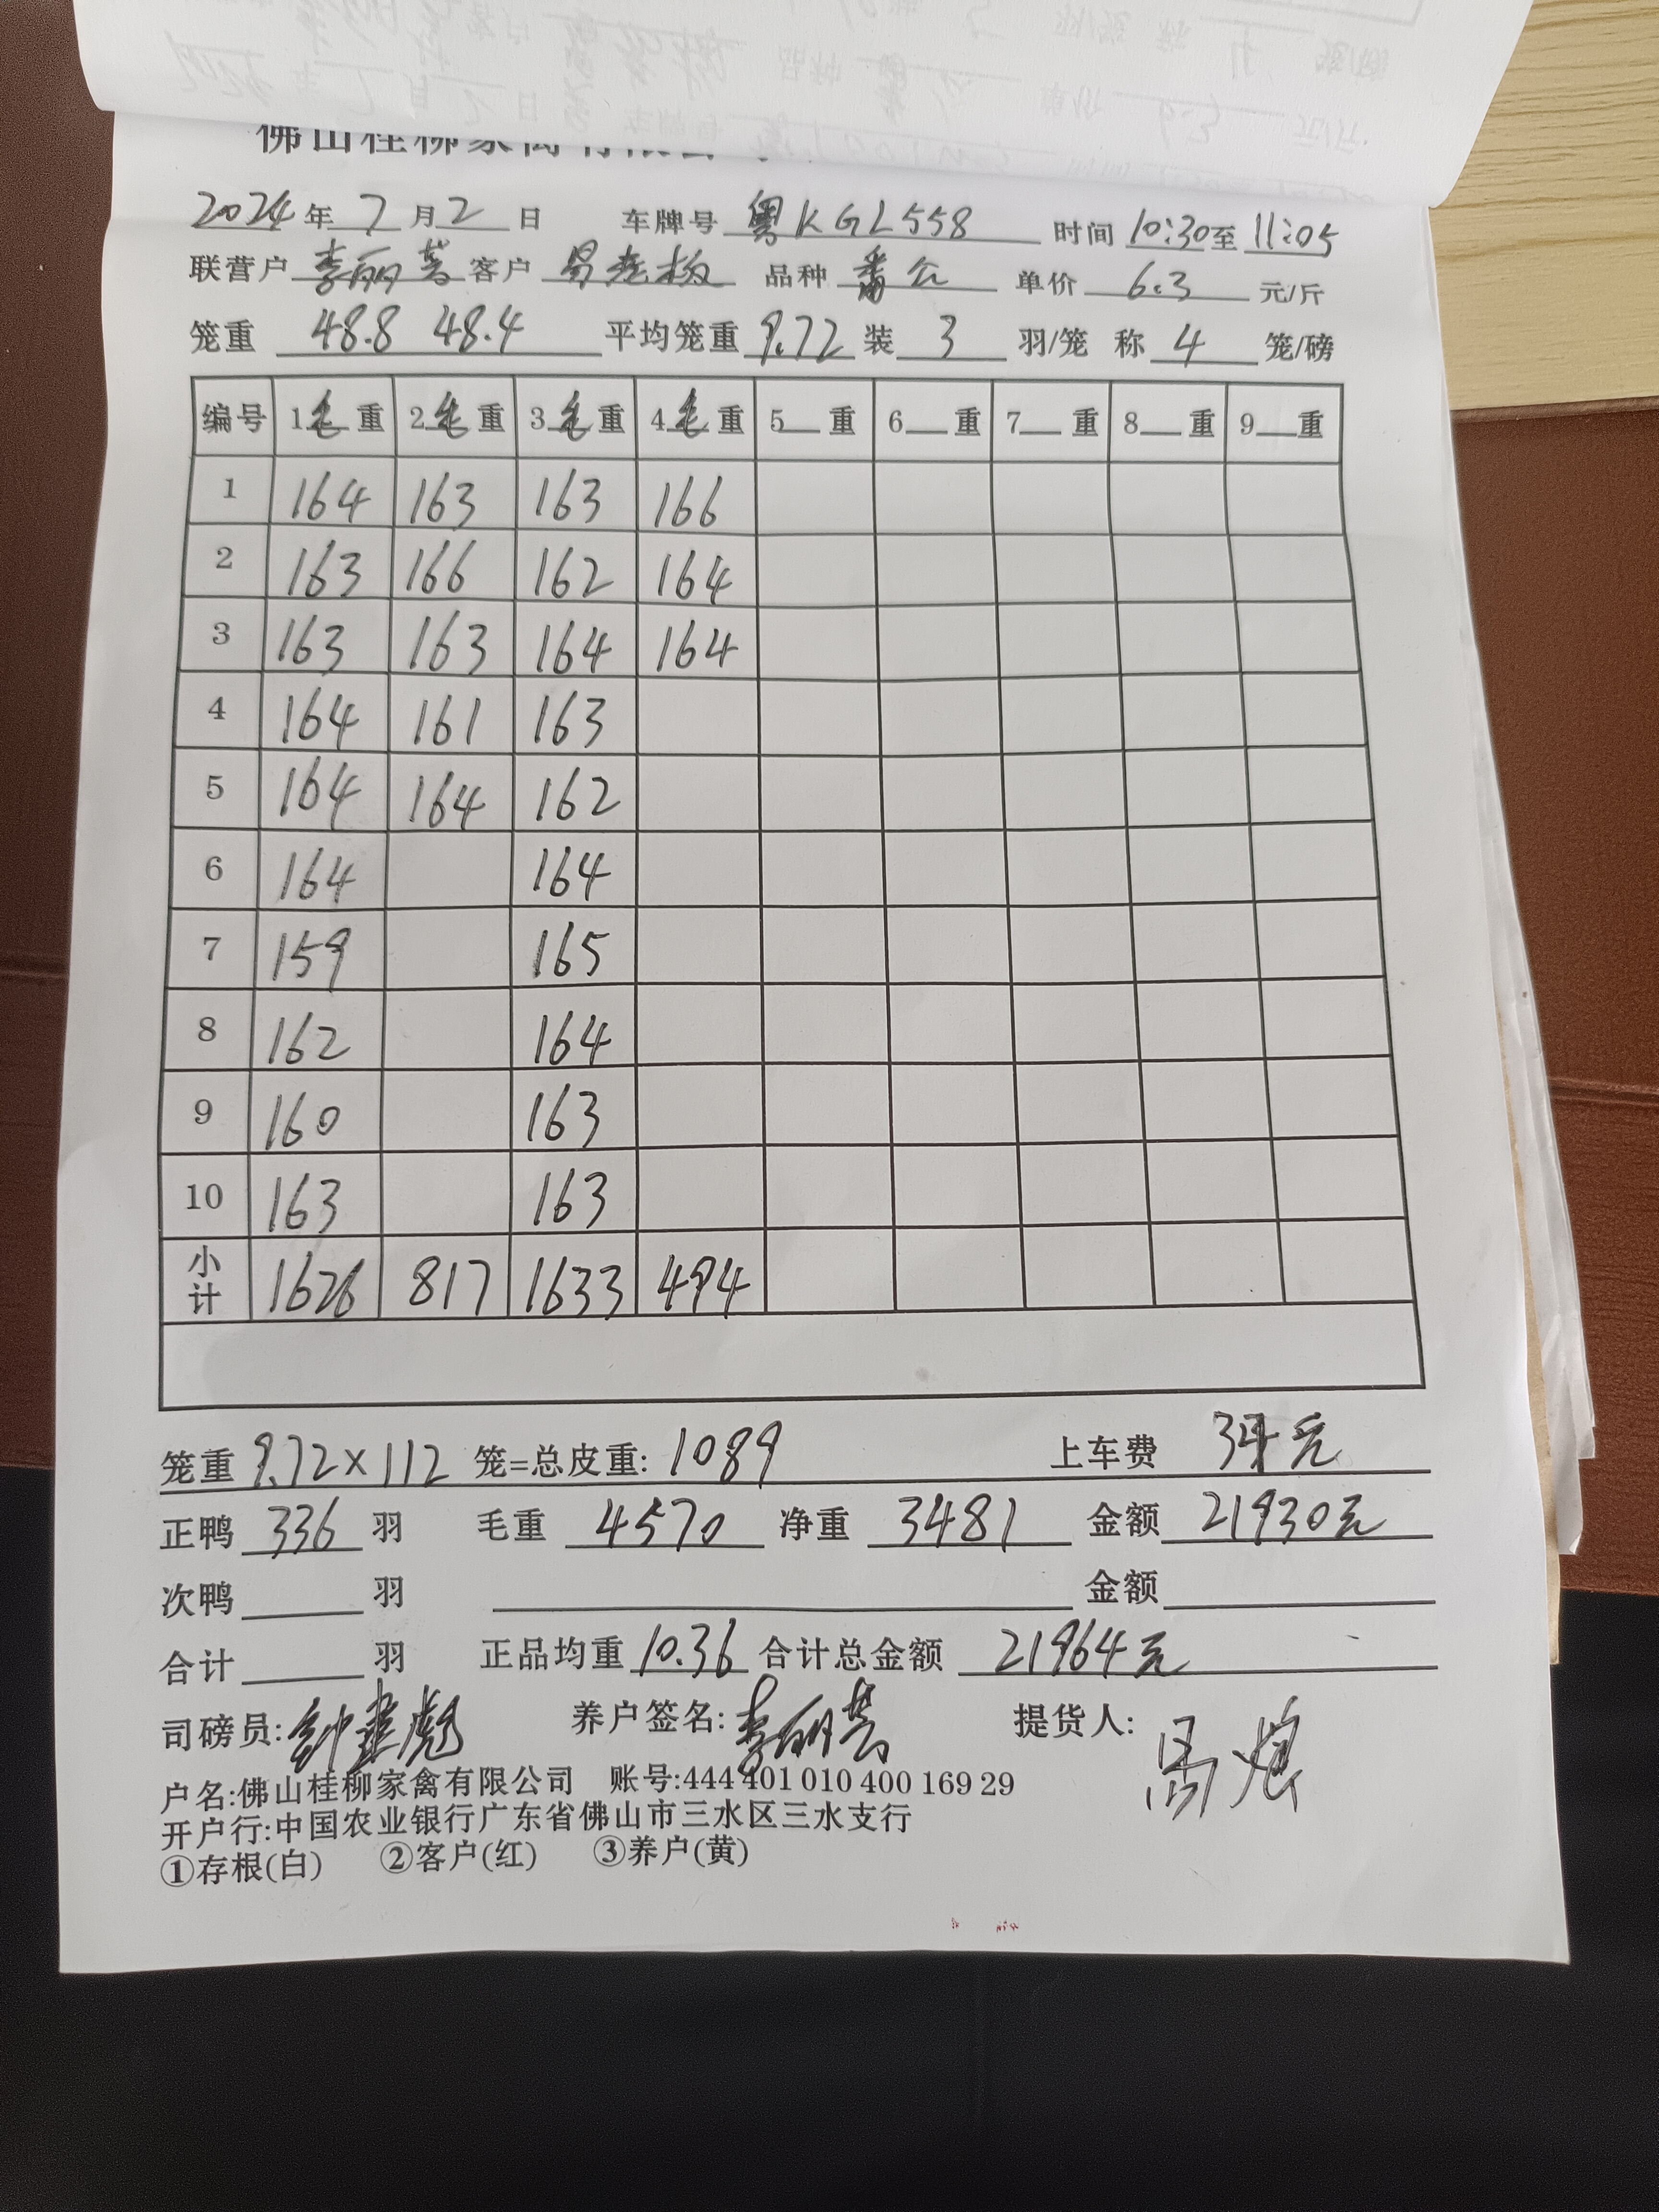 佛山桂柳家禽有限公司
2024年7月2日 车牌号 粤KGL558 时间 10:30至11:05
联营户 李丽芳 客户 易老板 品种 番公 单价 6.3 元/斤
笼重 48.8 48.4 平均笼重 9.72 装 3 羽/笼 称 4 笼/磅
编号 1毛重 2毛重 3毛重 4毛重 5__重 6__重 7__重 8__重 9__重
1 164 163 163 166
2 163 166 162 164
3 163 163 164 164
4 164 161 163
5 164 164 162
6 164 164
7 159 165
8 162 164
9 160 163
10 163 163
小计 1626 817 1633 494
笼重 9.72×112 笼=总皮重: 1089 上车费 34元
正鸭 336 羽 毛重 4570 净重 3481 金额 21930元
次鸭 羽 金额
合计 羽 正品均重 10.36 合计总金额 21964元
司磅员: 养户签名: 李丽芳 提货人:
户名:佛山桂柳家禽有限公司 账号:444 401 010 400 169 29
开户行:中国农业银行广东省佛山市三水区三水支行
①存根(白) ②客户(红) ③养户(黄)